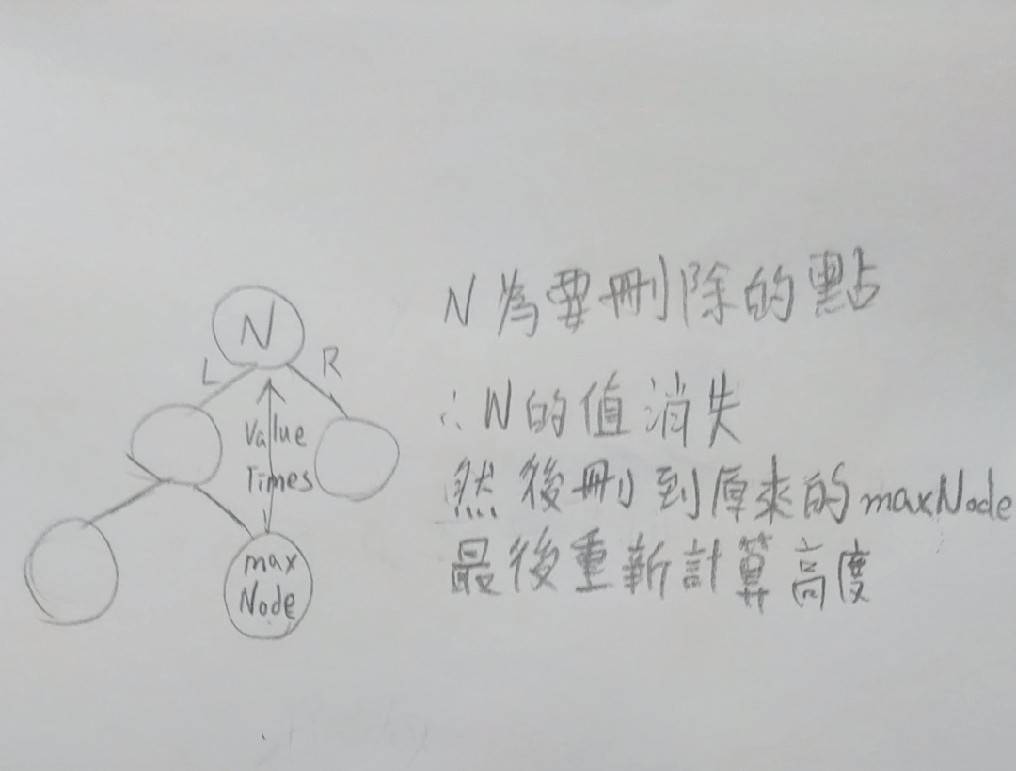 N
L
R
Value
Times
max
Node
N 為要刪除的點
∴N的值消失
然後刪到原來的maxNode
最後重新計算高度